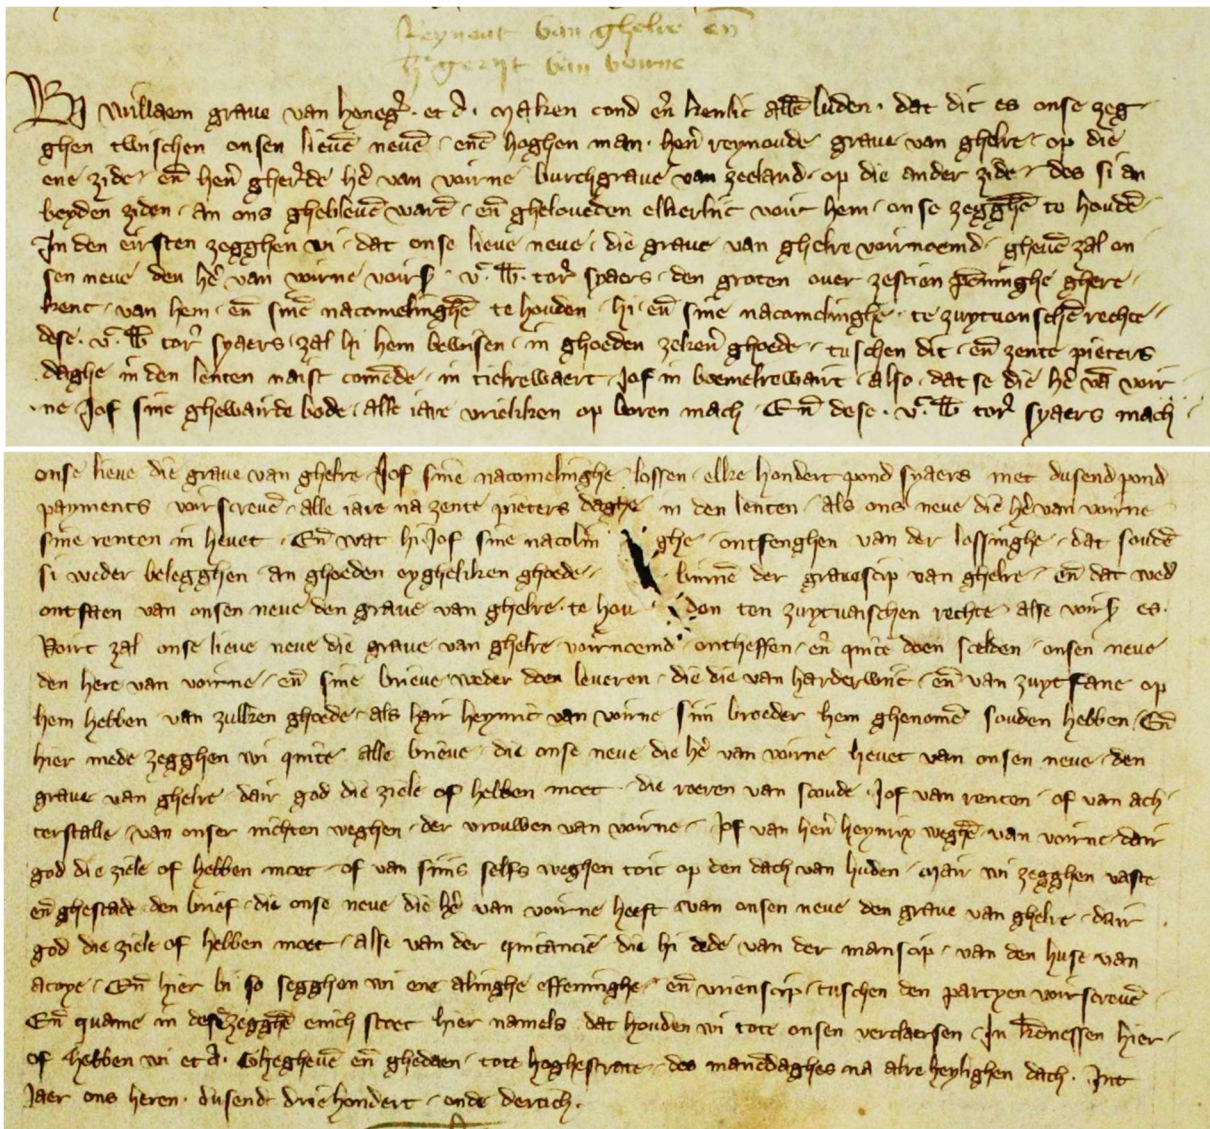 Reynout van ghelre en̄
h̓ gerijt van voirne
Wi willaem graue van heneg̓. et c̓. Maken cond en̄ kenlic allē luden. dat dit es onse zeg
ghen twisschen onsen lieuē neuē enē hoghen man. hen̄ reynoude graue van ghelre op die
ene zide en̄ hen̄ gher̓de hē van voirne burchgraue van zeeland. op die ander zide des si an
beyden ziden an ons ghebleuē warē en̄ gheloueden elkerlijc voir hem onse zegghē to houdē
In den eirsten zegghen wi dat onse lieue neue die graue van ghelre voirnoemd gheuē zal on
sen neue den hē van voirne voirs̄ v.ͨ lb̄. tor̓ syaers den groten ouer zestien penninghe ghere
kent van hem en̄ sinē nacomelinghē te houden hi en̄ sine nacomelinghē te zuytuenschē rechte
dese. v.ͨ lb̄ tor̓ syaers zal hi hem bewisen in ghoeden zeken̄ ghoede tuschen dit en̄ zente pieters
daghe in den lenten naist comēde in tielrewaert Jof in boemelrewairt also dat se die hē vā voir
ne Jof sine ghewairde bode alle iare vrielikken op boren mach En̄ dese. v.ͨ lb̄ tor̓ syaers mach
onse lieue die graue van ghelre Jof sine nacomelinghe lossen elke hondert pond syaers met dusend pond
payments voirscreuē alle iare na zente pieters daghe in den lenten als ons neue die hē van voirne
sine renten in heuet En̄ wat hi Jof sine nacolin ghe ontfenghen van der lossinghe dat soudē
si weder belegghen an ghoeden eygheliken ghoede binnē der graefscip van ghelre en̄ dat wed̓
ontfaen van onsen neue den graue van ghelre te hou den ten zuytuaischen rechte alse voirs̄ es.
Voirt zal onse lieue neue die graue van ghelre voirnoemd ontheffen en̄ quite doen scelden onsen neue
den here van voirne en̄ sine brieue weder doen leueren die die van harderwiic en̄ van zuytfane op
hem hebben van zulken ghoede als hair heynric van voirne siin broeder hem ghenomē souden hebben En̄
hier mede zegghen wi quite alle brieue die onse neue die hē van voirne heuet van onsen neue den
graue van ghelre dair god die ziele of hebben moet die roeren van scoude Jof van renten of van ach
terstalle van onser nichten weghen der vrouwen van voirne Jof van hen̄ heynrix weghē van voirne dair
god die ziele of hebben moet of van siins selfs weghen toit op den dach van huden Mair wi zegghen vaste
en̄ ghestade den brief die onse neue die hē van voirne heeft van onsen neue den graue van ghelre dair
god die ziele of hebben moet alse van der quitancie die hi dede van der manscip van den huse van
acoye En̄ hier bi so segghen wi ene alinghe effeninghe en̄ vrienscip tuschen den partyen voirscreuē
En̄ quame in desē zegghē enich stoet hier namels dat houden wi tote onsen verclaersen In kēnessen hier
of hebben wi et c̓. Ghegheuē en̄ ghedaen tote hoghestrate des manēdaghes na alre heylighen dach. Int
Jaer ons heren. dusend driehondert ende dertich.